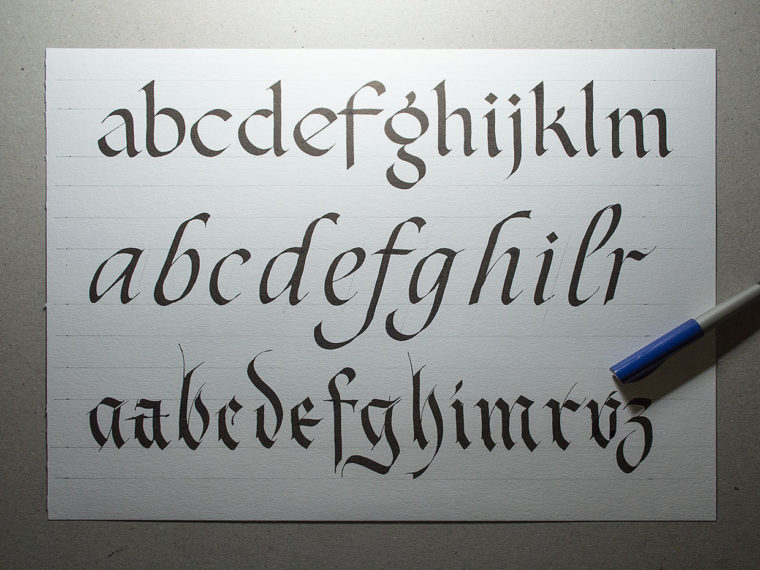 abcdefghijklm
abcdefghilr
aabcdefghimrvz